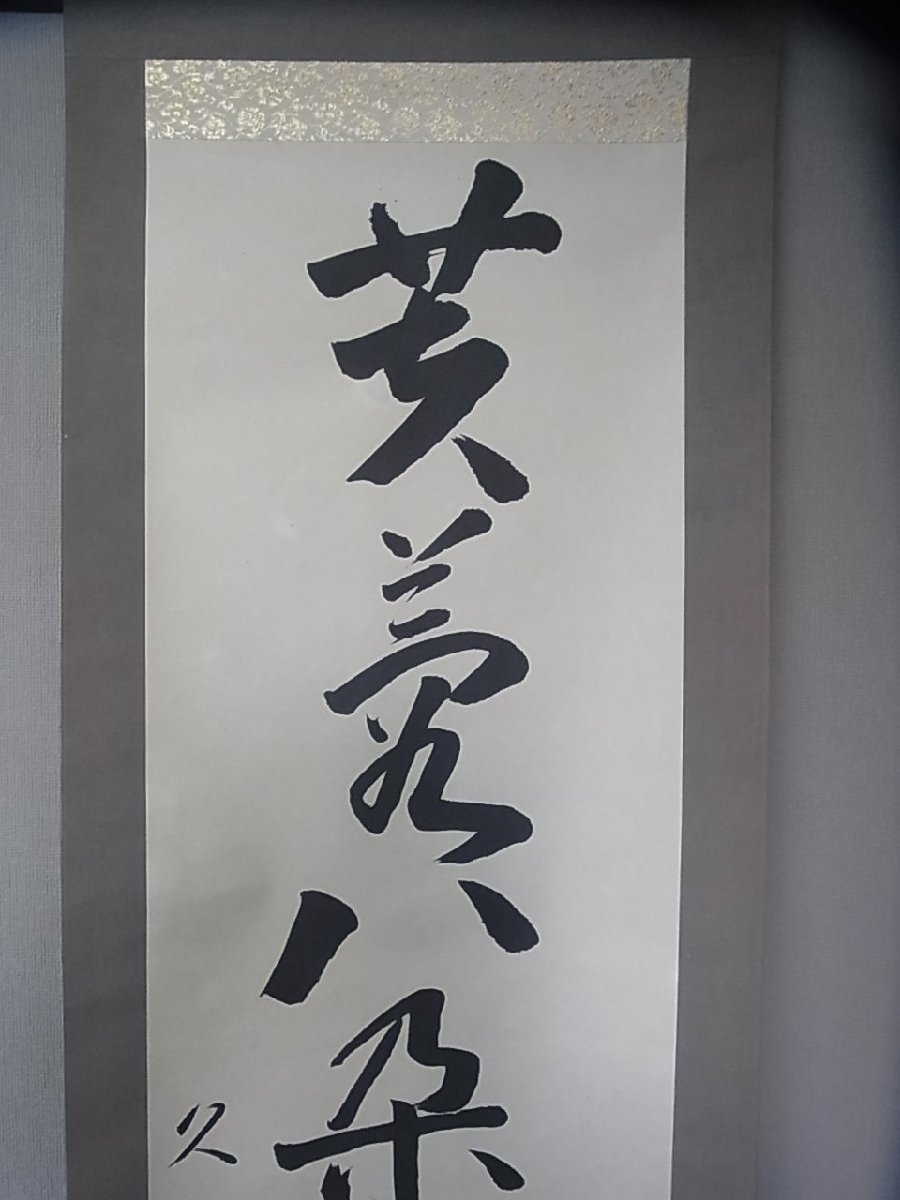 芙蓉八朶
久